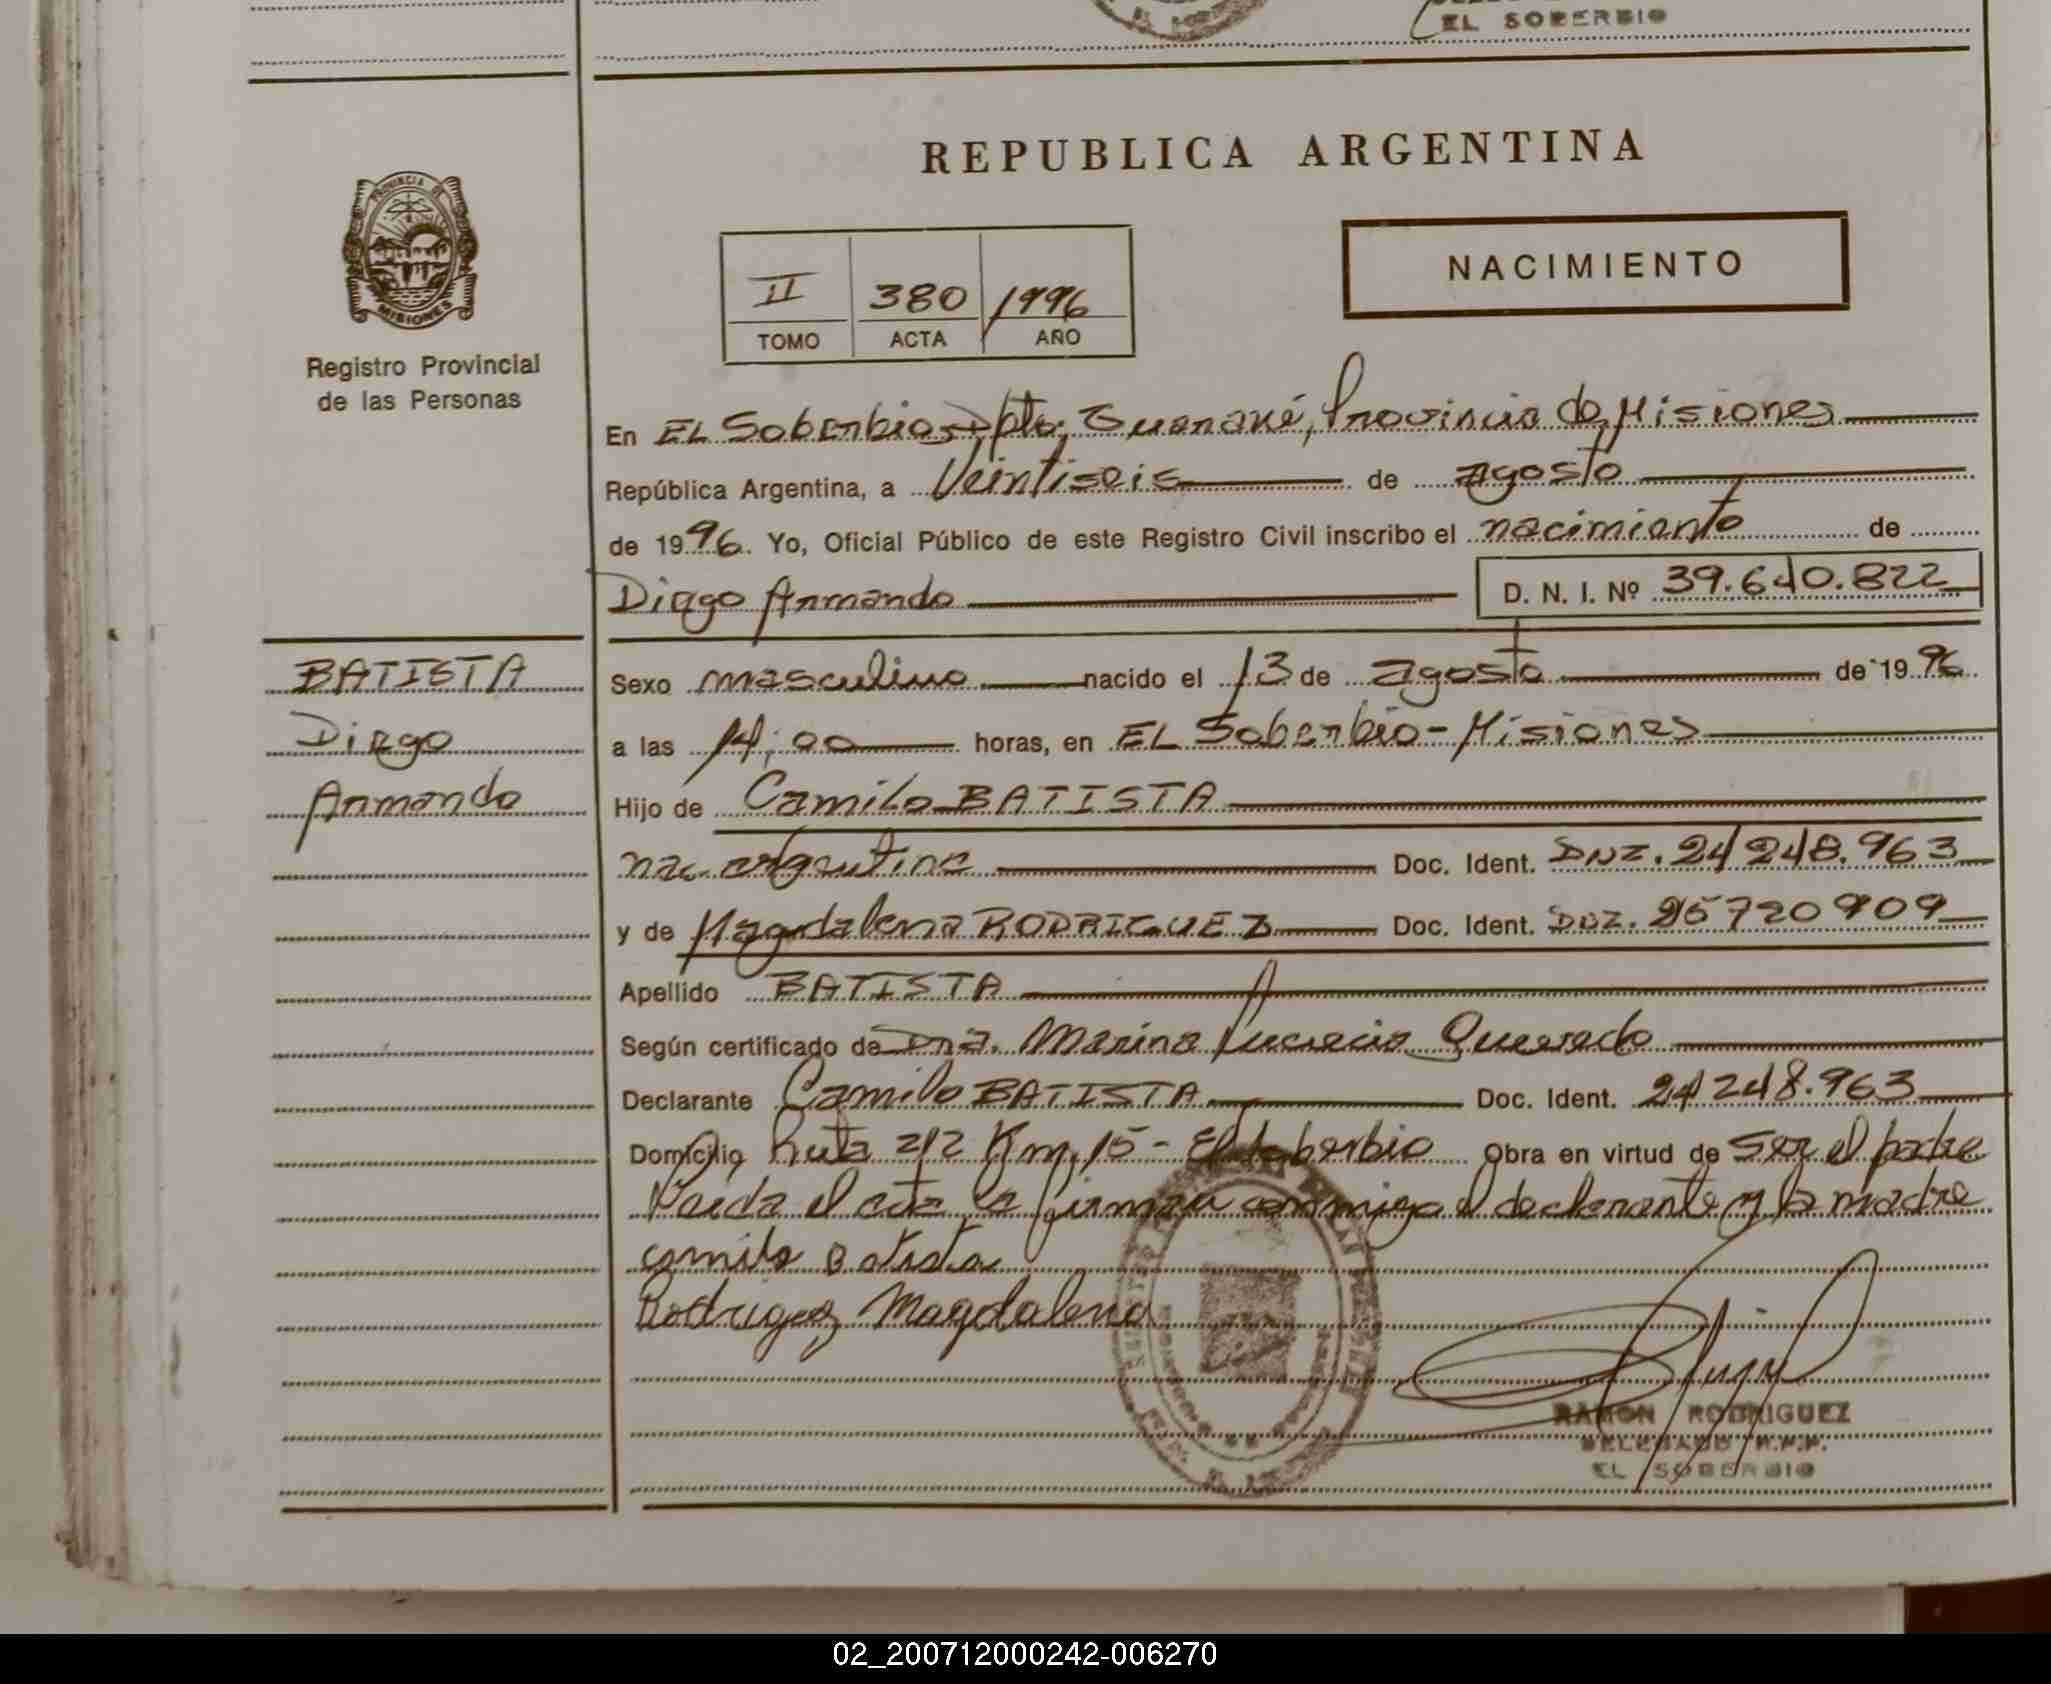 EL SOBERBIO
REPUBLICA ARGENTINA
PROVINCIA DE
MISIONES
Registro Provincial
de las Personas
II 380 1996
TOMO ACTA AÑO
NACIMIENTO
En EL Soberbio, Dpto; Guaraní, Provincia de Misiones
República Argentina, a Veintiseis de agosto
de 1996. Yo, Oficial Público de este Registro Civil inscribo el nacimiento de
Diego Armando D. N. I. Nº 39.640.822
BATISTA
Diego
Armando
Sexo masculino nacido el 13 de agosto de 1996
a las 14;00 horas, en EL Soberbio - Misiones
Hijo de Camilo BATISTA
nac. argentina Doc. Ident. DNI. 24248.963
y de Magdalena RODRIGUEZ Doc. Ident. DNI. 25720909
Apellido BATISTA
Según certificado de Dra. Marina Lucrecia Quevedo
Declarante Camilo BATISTA Doc. Ident. 24248.963
Domicilio Ruta 212 Km. 15 - El Soberbio Obra en virtud de ser el padre
Leida el acta la firman conmigo el declarante y la madre
camilo Batista
Rodriguez Magdalena
RAMON RODRIGUEZ
DELEGADO R.P.P.
EL SOBERBIO
02_200712000242-006270